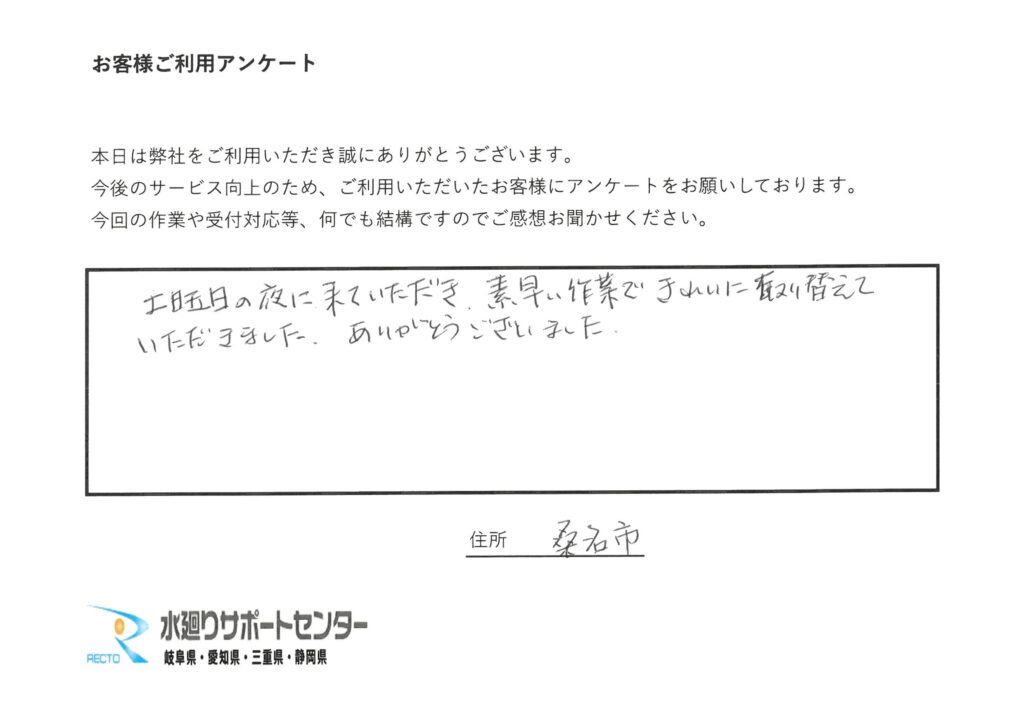 お客様ご利用アンケート
本日は弊社をご利用いただき誠にありがとうございます。
今後のサービス向上のため、ご利用いただいたお客様にアンケートをお願いしております。
今回の作業や受付対応等、何でも結構ですのでご感想お聞かせください。
土曜日の夜に来ていただき、素早い作業できれいに取り替えて
いただきました。ありがとうございました。
住所 桑名市
水廻りサポートセンター
RECTO 岐阜県・愛知県・三重県・静岡県